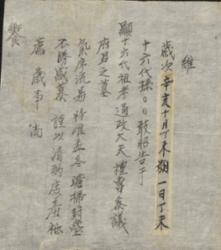 維
歲次辛亥十月丁未朔一日丁未
十六代孫○○敢昭告于
顯十六代祖考通政大夫禮曹參議
府君之墓
氣序流易 維孟冬瞻掃封塋
不勝感慕謹以清酌庶羞祗
薦歲事尚
饗